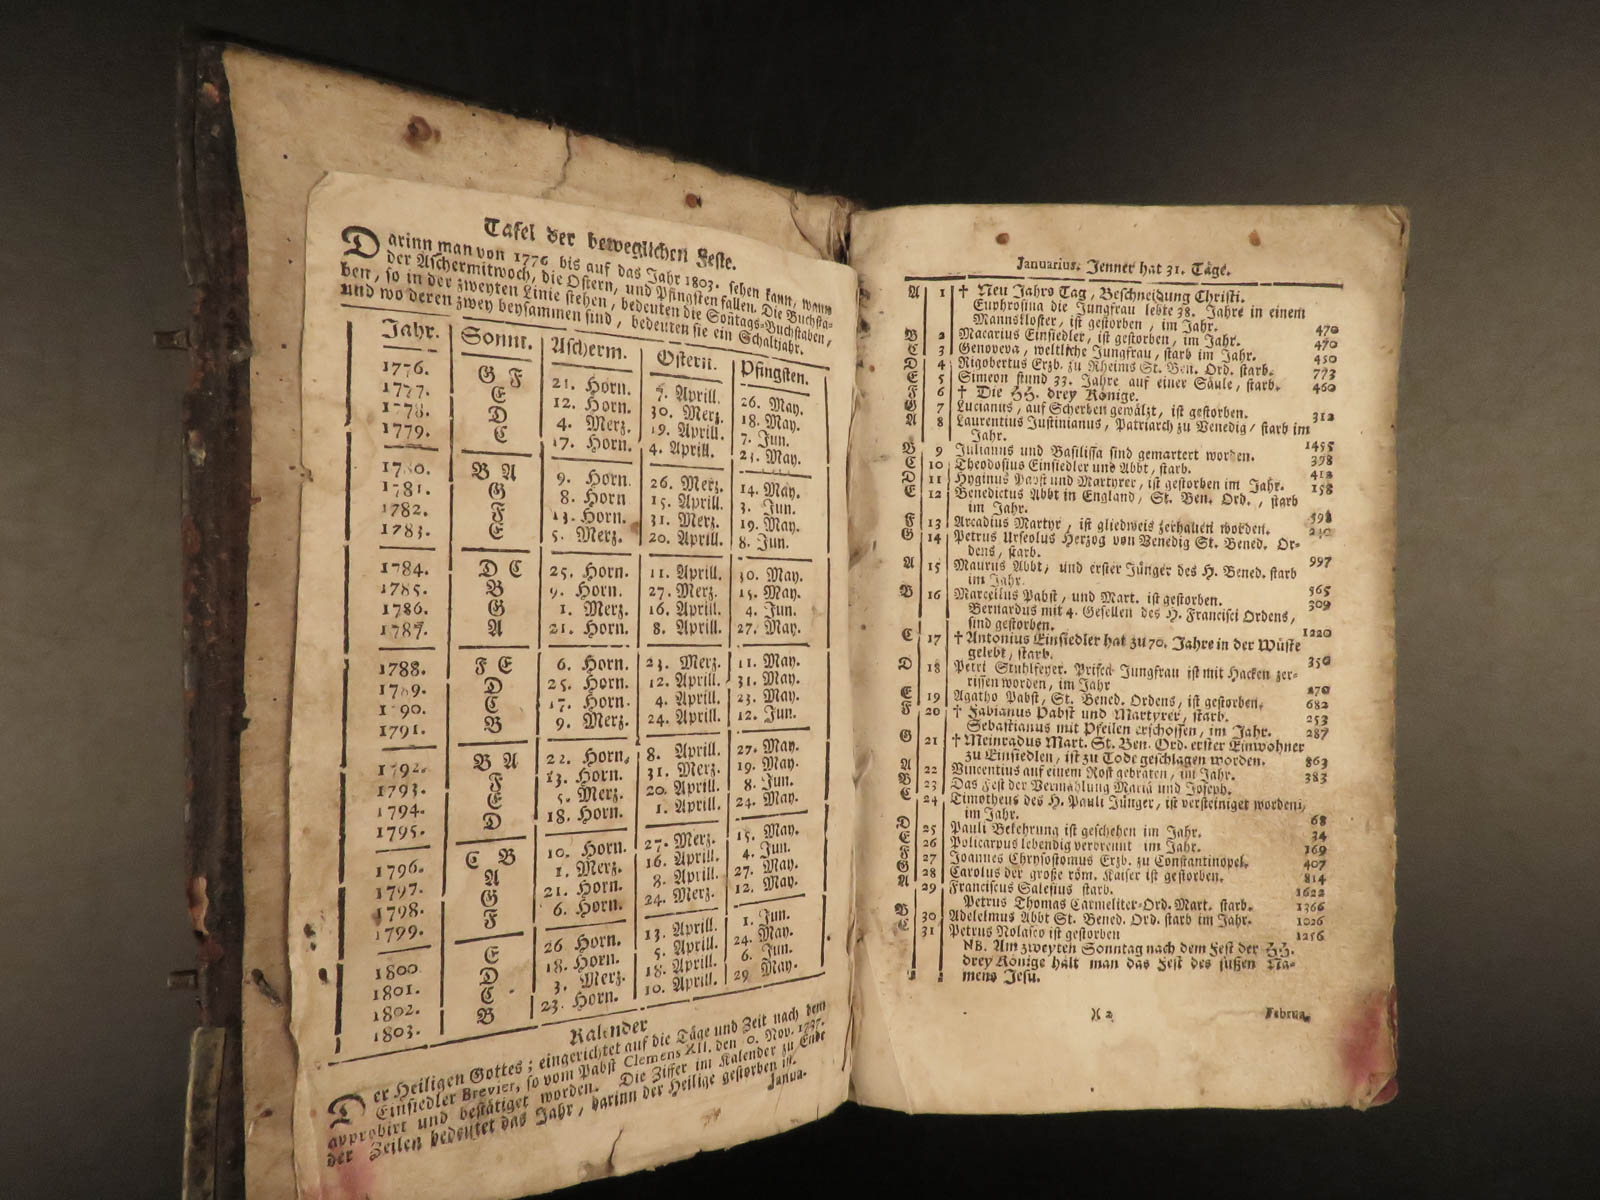 Tafel der beweglichen Feste.
Darinn man von 1776 bis auf das Jahr 1803. sehen kann, wann
der Aschermitwoch, die Ostern, und Pfingsten fallen. Die Buchsta-
ben, so in der zweyten Linie stehen, bedeuten die Soñtags-Buchstaben,
und wo deren zwey beysammen sind, bedeuten sie ein Schaltjahr.
Jahr. Sonnt. Ascherm. Ostern. Pfingsten.
1776. G F 21. Horn. 7. Aprill. 26. May.
1777. E 12. Horn. 30. Merz. 18. May.
1778. D 4. Merz. 19. Aprill. 7. Jun.
1779. C 17. Horn. 4. Aprill. 23. May.
1780. B A 9. Horn. 26. Merz. 14. May.
1781. G 8. Horn 15. Aprill. 3. Jun.
1782. F 13. Horn. 31. Merz. 19. May.
1783. E 5. Merz. 20. Aprill. 8. Jun.
1784. D C 25. Horn. 11. Aprill. 30. May.
1785. B 9. Horn. 27. Merz. 15. May.
1786. G 1. Merz. 16. Aprill. 4. Jun.
1787. A 21. Horn. 8. Aprill. 27. May.
1788. F E 6. Horn. 23. Merz. 11. May.
1789. D 25. Horn. 12. Aprill. 31. May.
1790. C 17. Horn. 4. Aprill. 23. May.
1791. B 9. Merz. 24. Aprill. 12. Jun.
1792. B A 22. Horn. 8. Aprill. 27. May.
1793. F 13. Horn. 31. Merz. 19. May.
1794. E 5. Merz. 20. Aprill. 8. Jun.
1795. D 18. Horn. 1. Aprill. 24. May.
1796. C B 10. Horn. 27. Merz. 15. May.
1797. A 1. Merz. 16. Aprill. 4. Jun.
1798. G 21. Horn. 8. Aprill. 27. May.
1799. F 6. Horn. 24. Merz. 12. May.
1800 E 26 Horn. 13. Aprill. 1. Jun.
1801. D 18. Horn. 5. Aprill. 24. May.
1802. C 3. Merz. 18. Aprill. 6. Jun.
1803. B 23. Horn. 10. Aprill. 29 May.
Kalender
Der Heiligen Gottes; eingerichtet auf die Täge und Zeit nach dem
Einsiedler Brevier, so vom Pabst Clemens XII. den Nov. 1737.
approbirt und bestätiget worden. Die Ziffer im Kalender zu Ende
der Zeilen bedeutet das Jahr, darinn der Heilige gestorben ist.
Janua-
Januarius. Jenner hat 31. Täge.
A 1 † Neu Jahrs Tag, Beschneidung Christi.
Euphrosina die Jungfrau lebte 38. Jahre in einem
Mannskloster, ist gestorben, im Jahr. 470
B 2 Macarius Einsiedler, ist gestorben, im Jahr. 470
C 3 Genoveva, weltliche Jungfrau, starb im Jahr. 450
D 4 Rigobertus Erzb. zu Rheims St. Ben. Ord. starb. 773
E 5 Simeon stund 33. Jahre auf einer Säule, starb. 460
F 6 † Die HH. drey Könige.
G 7 Lucianus, auf Scherben gewälzt, ist gestorben. 312
A 8 Laurentius Justinianus, Patriarch zu Venedig, starb im
Jahr. 1455
B 9 Julianus und Basilissa sind gemartert worden. 398
C 10 Theodosius Einsiedler und Abbt, starb. 412
D 11 Hyginus Pabst und Martyrer, ist gestorben im Jahr. 158
E 12 Benedictus Abbt in England, St. Ben. Ord., starb
im Jahr.
F 13 Arcadius Martyr, ist gliedweis zerhauen worden.
G 14 Petrus Urseolus Herzog von Venedig St. Bened. Or-
dens, starb. 997
A 15 Maurus Abbt, und erster Jünger des H. Bened. starb
im Jahr. 565
B 16 Marcellus Pabst, und Mart. ist gestorben. 309
Bernardus mit 4. Gesellen des H. Francisci Ordens,
sind gestorben. 1220
C 17 † Antonius Einsiedler hat zu 70. Jahre in der Wüste
gelebt, starb. 350
D 18 Petri Stuhlfeyer. Prisca Jungfrau ist mit Hacken zer-
rissen worden, im Jahr 270
E 19 Agatho Pabst, St. Bened. Ordens, ist gestorben. 682
F 20 † Fabianus Pabst und Martyrer, starb. 253
Sebastianus mit Pfeilen erschossen, im Jahr. 287
G 21 † Meinradus Mart. St. Ben. Ord. erster Einwohner
zu Einsiedlen, ist zu Tode geschlagen worden. 863
A 22 Vincentius auf einem Rost gebraten, im Jahr. 383
B 23 Das Fest der Vermählung Mariä und Joseph.
C 24 Timotheus des H. Pauli Jünger, ist versteiniget worden,
im Jahr. 68
D 25 Pauli Bekehrung ist geschehen im Jahr. 34
E 26 Policarpus lebendig verbrennt im Jahr. 169
F 27 Joannes Chrysostomus Erzb. zu Constantinopel. 407
G 28 Carolus der große röm. Kaiser ist gestorben. 814
A 29 Franciscus Salesius starb. 1622
Petrus Thomas Carmeliter-Ord. Mart. starb. 1366
B 30 Adelelmus Abbt St. Bened. Ord. starb im Jahr. 1026
C 31 Petrus Nolasco ist gestorben 1256
NB. Am zweyten Sonntag nach dem Fest der HH.
drey Könige hält man das Fest des süßen Na-
mens Jesu.
X 2 Februa-